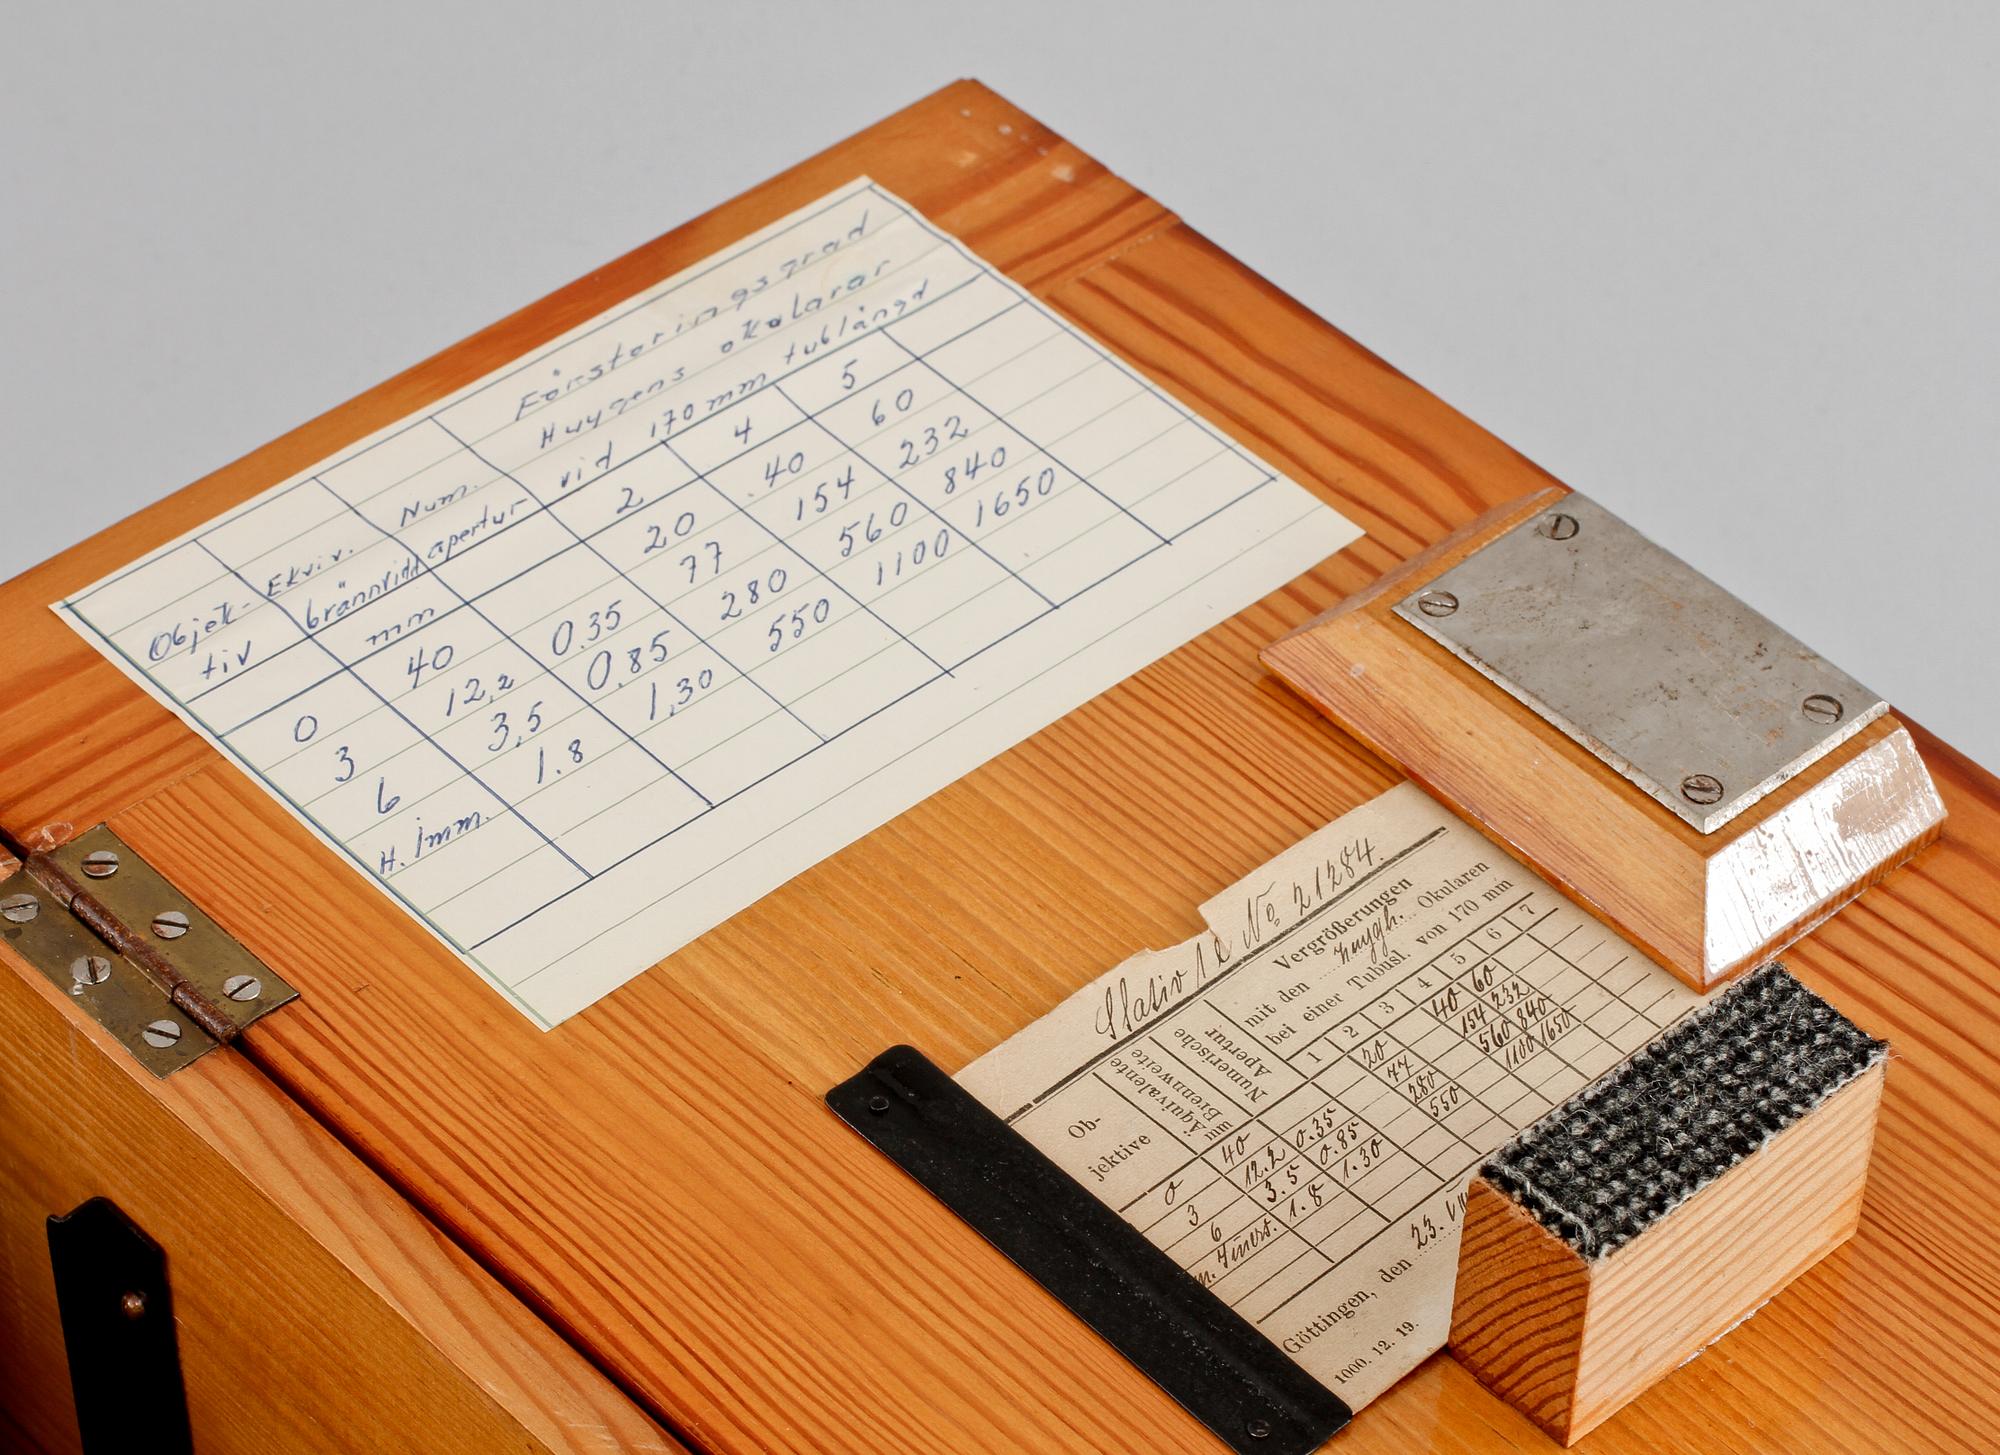 Förstoringsgrad
Huygens okularar
vid 170 mm tublängd
Objek- Ekviv. Num.
tiv brännvidd apertur 2 4 5
mm
0 40 20 40 60
3 12,2 0.35 77 154 232
6 3,5 0.85 280 560 840
H. imm. 1.8 1,30 550 1100 1650
Stativ No. 21284.
Vergrößerungen
mit den huygh. Okularen
bei einer Tubusl. von 170 mm
Ob-
jektive
Äquivalente
Brennweite
mm
Numerische
Apertur
1 2 3 4 5 6 7
0 40 20 40 60
3 12.2 0.35 77 154 232
6 3.5 0.85 280 560 840
m. Imers. 1.8 1.30 550 1100 1650
Göttingen, den 23.
1000. 12. 19.